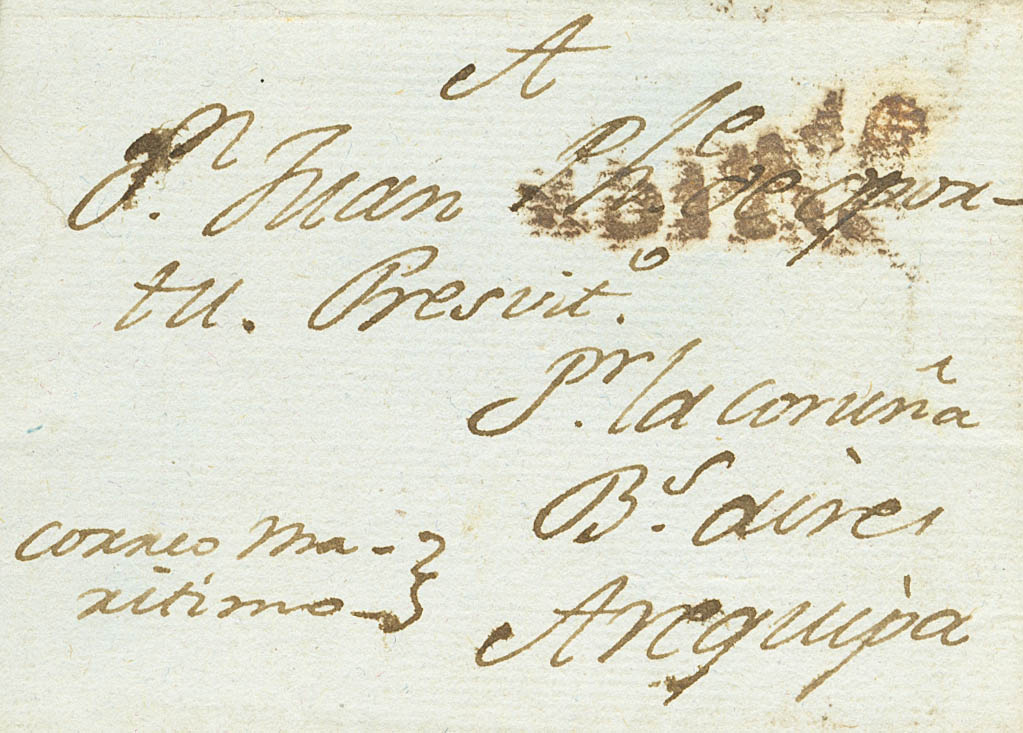 A
Dn. Juan Phe. de Por-
tu. Presvito.
Pr. la coruña
Bs. aires
Arequipa
correo Ma-
ritimo